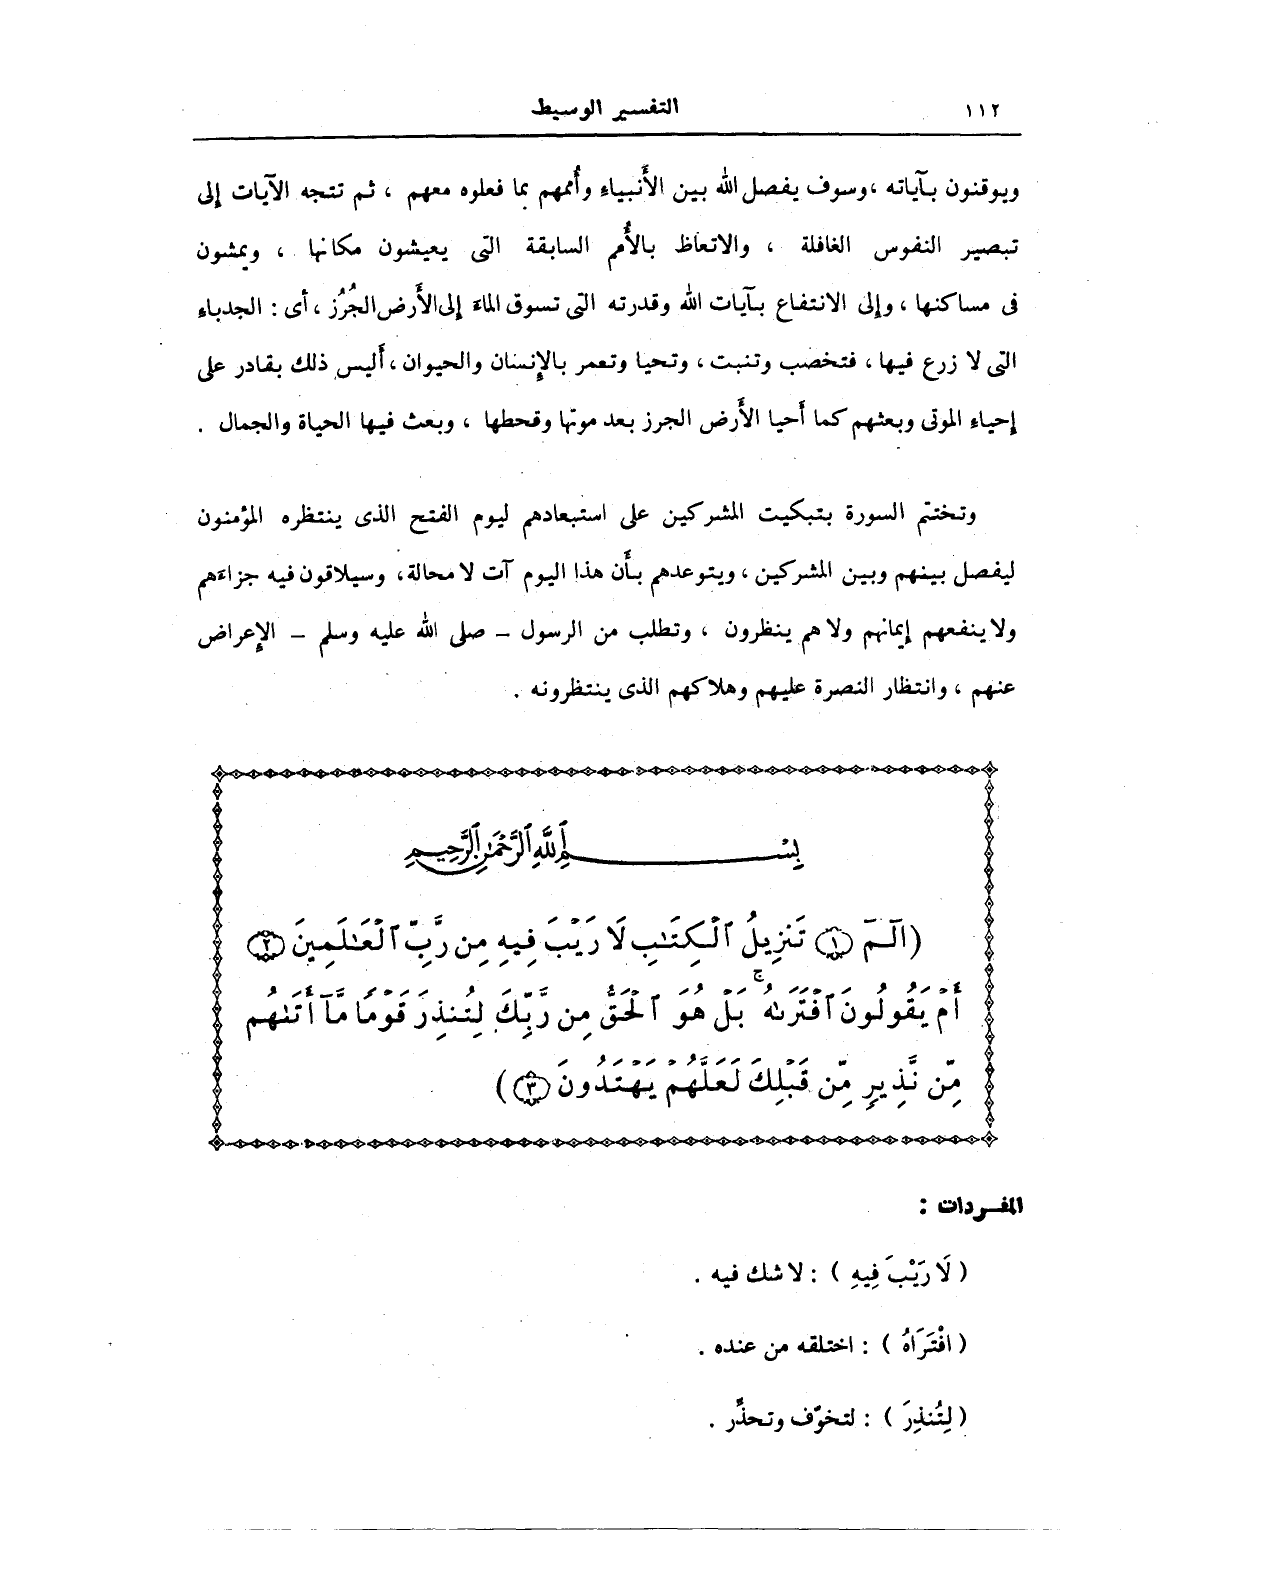 ١١٢ التفسير الوسيط
ويوقنون بآياته ، وسوف يفصل الله بين الأَنبياء وأُممهم بما فعلوه معهم ، ثم تتجه الآيات إلى
تبصير النفوس الغافلة ، والاتعاظ بالأُمم السابقة التى يعيشون مكانها ، ويمشون
فى مساكنها ، وإلى الانتفاع بآيات الله وقدرته التى تسوق الماءَ إلى الأَرض الجُرُز ، أى : الجدباء
التى لا زرع فيها ، فتخصب وتنبت ، وتحيا وتعمر بالإنسان والحيوان ، أَليس ذلك بقادر على
إحياء الموتى وبعثهم كما أَحيا الأَرض الجرز بعد موتها وقحطها ، وبعث فيها الحياة والجمال .
وتختتم السورة بتبكيت المشركين على استبعادهم ليوم الفتح الذى ينتظره المؤمنون
ليفصل بينهم وبين المشركين ، ويتوعدهم بأَن هذا اليوم آت لا محالة ، وسيلاقون فيه جزاءَهم
ولا ينفعهم إيمانهم ولا هم ينظرون ، وتطلب من الرسول – صلى الله عليه وسلم – الإعراض
عنهم ، وانتظار النصرة عليهم وهلاكهم الذى ينتظرونه .
بِسْمِ ٱللَّهِ ٱلرَّحْمَٰنِ ٱلرَّحِيمِ
(الٓمٓ ١ تَنزِيلُ ٱلْكِتَٰبِ لَا رَيْبَ فِيهِ مِن رَّبِّ ٱلْعَٰلَمِينَ ٢
أَمْ يَقُولُونَ ٱفْتَرَىٰهُ ۚ بَلْ هُوَ ٱلْحَقُّ مِن رَّبِّكَ لِتُنذِرَ قَوْمًا مَّآ أَتَىٰهُم
مِّن نَّذِيرٍ مِّن قَبْلِكَ لَعَلَّهُمْ يَهْتَدُونَ ٣)
المفردات :
( لَا رَيْبَ فِيهِ ) : لا شك فيه .
( افْتَرَاهُ ) : اختلقه من عنده .
( لِتُنذِرَ ) : لتخوّف وتحذِّر .